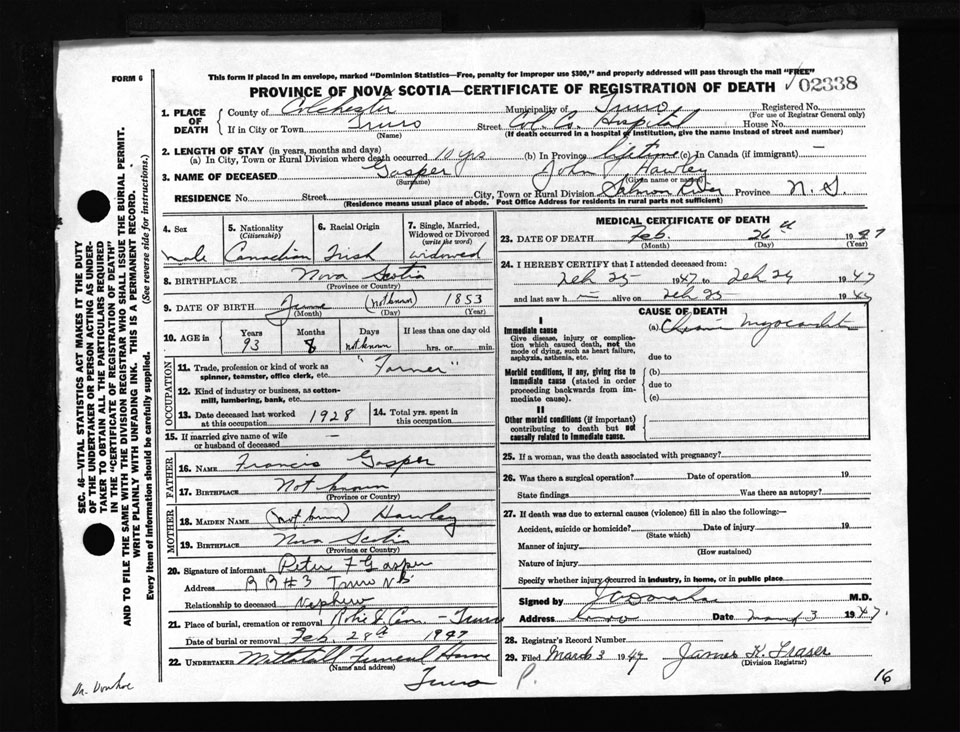 FORM 6
This form if placed in an envelope, marked "Dominion Statistics—Free, penalty for improper use $300," and properly addressed will pass through the mail "FREE"
PROVINCE OF NOVA SCOTIA—CERTIFICATE OF REGISTRATION OF DEATH
02338
1. PLACE OF DEATH
County of Colchester Municipality of Truro Registered No.
(For use of Registrar General only)
If in City or Town Truro Street Col. Co. Hospital House No.
(Name) (If death occurred in a hospital of institution, give the name instead of street and number)
2. LENGTH OF STAY (in years, months and days)
(a) In City, Town or Rural Division where death occurred 10 yrs (b) In Province lifetime (c) In Canada (if immigrant) —
3. NAME OF DECEASED Gasper John J Hawley
(Surname) (Given name or names)
RESIDENCE No. Street City, Town or Rural Division Salmon River Province N. S.
(Residence means usual place of abode. Post Office Address for residents in rural parts not sufficient)
4. Sex
5. Nationality
(Citizenship)
6. Racial Origin
7. Single, Married, Widowed or Divorced
(write the word)
male Canadian Irish widowed
8. BIRTHPLACE Nova Scotia
(Province or Country)
9. DATE OF BIRTH June (not known) 1853
(Month) (Day) (Year)
10. AGE in
Years Months Days If less than one day old
93 8 not known hrs. or min.
OCCUPATION
11. Trade, profession or kind of work as spinner, teamster, office clerk, etc. "Farmer"
12. Kind of industry or business, as cotton-mill, lumbering, bank, etc.
13. Date deceased last worked at this occupation 1928
14. Total yrs. spent in this occupation
15. If married give name of wife or husband of deceased —
FATHER
16. NAME Francis Gasper
17. BIRTHPLACE Not known
(Province or Country)
MOTHER
18. MAIDEN NAME (not known) Hawley
19. BIRTHPLACE Nova Scotia
(Province or Country)
20. Signature of informant Peter F Gasper
Address R R #3 Truro N S
Relationship to deceased Nephew
21. Place of burial, cremation or removal Robie St Cem. - Truro
Date of burial or removal Feb. 28th 1947
22. UNDERTAKER Mattatall Funeral Home
(Name and address)
Truro
MEDICAL CERTIFICATE OF DEATH
23. DATE OF DEATH Feb. 26th 1947
(Month) (Day) (Year)
24. I HEREBY CERTIFY that I attended deceased from:
Feb 25 1947 to Feb 1947
and last saw h alive on Feb 25 19
CAUSE OF DEATH
I
Immediate cause
Give disease, injury or complication which caused death, not the mode of dying, such as heart failure, asphyxia, asthenia, etc.
(a) Chronic Myocarditis
due to
Morbid conditions, if any, giving rise to immediate cause (stated in order proceeding backwards from immediate cause).
(b)
due to
(c)
II
Other morbid conditions (if important) contributing to death but not causally related to immediate cause.
25. If a woman, was the death associated with pregnancy?
26. Was there a surgical operation? Date of operation 19
State findings Was there an autopsy?
27. If death was due to external causes (violence) fill in also the following:—
Accident, suicide or homicide? Date of injury 19
(State which)
Manner of injury
(How sustained)
Nature of injury
Specify whether injury occurred in industry, in home, or in public place
Signed by M.D.
Address Truro Date March 3 1947.
28. Registrar's Record Number
29. Filed March 3 1947 James K. Fraser
(Division Registrar)
P.
16
Dr. Donahoe
SEC. 46—VITAL STATISTICS ACT MAKES IT THE DUTY
OF THE UNDERTAKER OR PERSON ACTING AS UNDER-
TAKER TO OBTAIN ALL THE PARTICULARS REQUIRED
IN THE "CERTIFICATE OF REGISTRATION OF DEATH"
AND TO FILE THE SAME WITH THE DIVISION REGISTRAR WHO SHALL ISSUE THE BURIAL PERMIT.
WRITE PLAINLY WITH UNFADING INK. THIS IS A PERMANENT RECORD.
Every item of information should be carefully supplied. (See reverse side for instructions.)